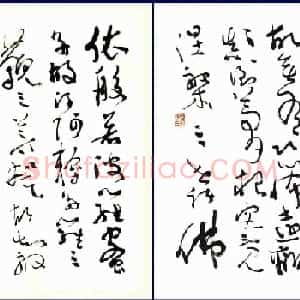 故無有恐怖遠離
顛倒夢想究竟
涅槃三世諸佛
依般若波羅蜜
多故得阿耨多羅三
藐三菩提故知般
Shufaziliao.com